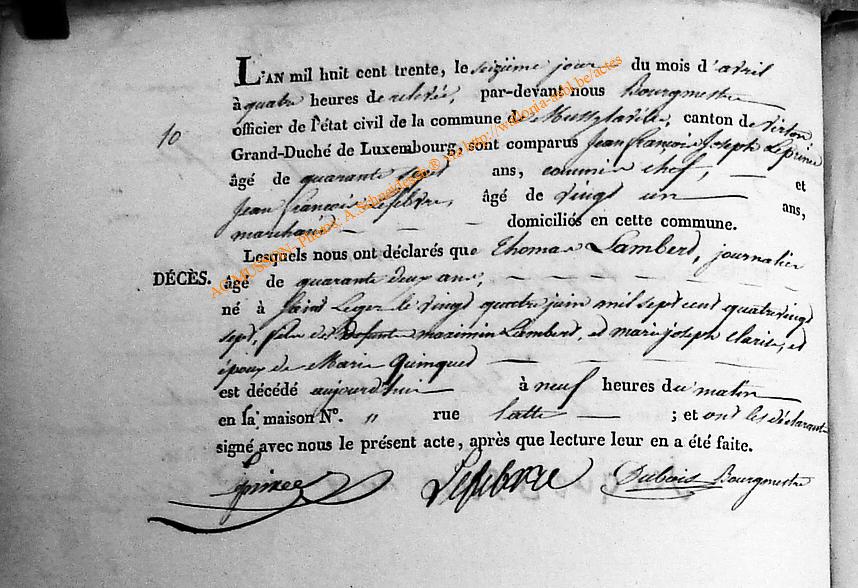 L'AN mil huit cent trente, le seizième jour du mois d'avril
à quatre heures de relevée, par-devant nous Bourgmestre
10
officier de l'état civil de la commune de canton de Virton
Grand-Duché de Luxembourg, sont comparus Jean françois Joseph Leprince
âgé de quarante ans, commis chef, et
Jean François Lefebvre, âgé de vingt un ans,
marchand domiciliés en cette commune.
Lesquels nous ont déclarés que Thomas Lambert, journalier
DÉCÈS.
âgé de quarante deux ans,
né à Saint Leger le vingt quatre juin mil sept cent quatre vingt
sept, de maximin Lambert, et marie joseph et
époux de Marie
est décédé aujourd'hui à neuf heures du matin
en sa maison N°. " rue ; et ont les déclarants
signé avec nous le présent acte, après que lecture leur en a été faite.
Lefebvre Dubois Bourgmestre
ACMUSSON - Photos: A.Schneidesch® via http://wallonia-asbl.be/actes